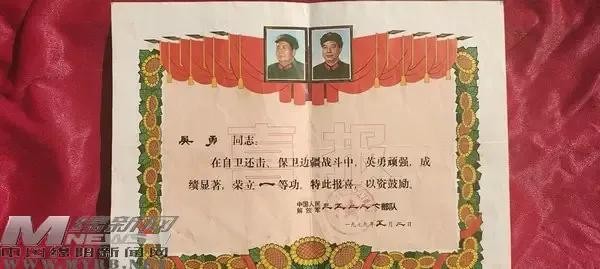 喜报
吴勇 同志：
在自卫还击、保卫边疆战斗中，英勇顽强，成
绩显著，荣立一等功。特此报喜，以资鼓励。
中国人民
解放军 部队
一九七九年五月二日
NEWS
中国绵阳新闻网